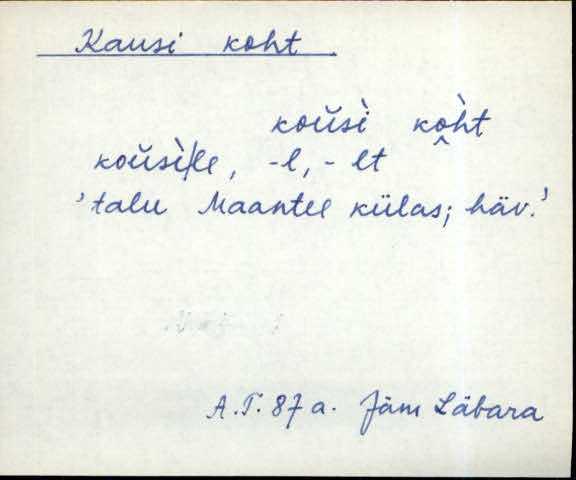 Kausi koht.
koŭsì kò̭ht
koŭsì/le, -l, -lt
'talu Maantee külas; häv.'
A.T. 87 a. Jäm Läbara